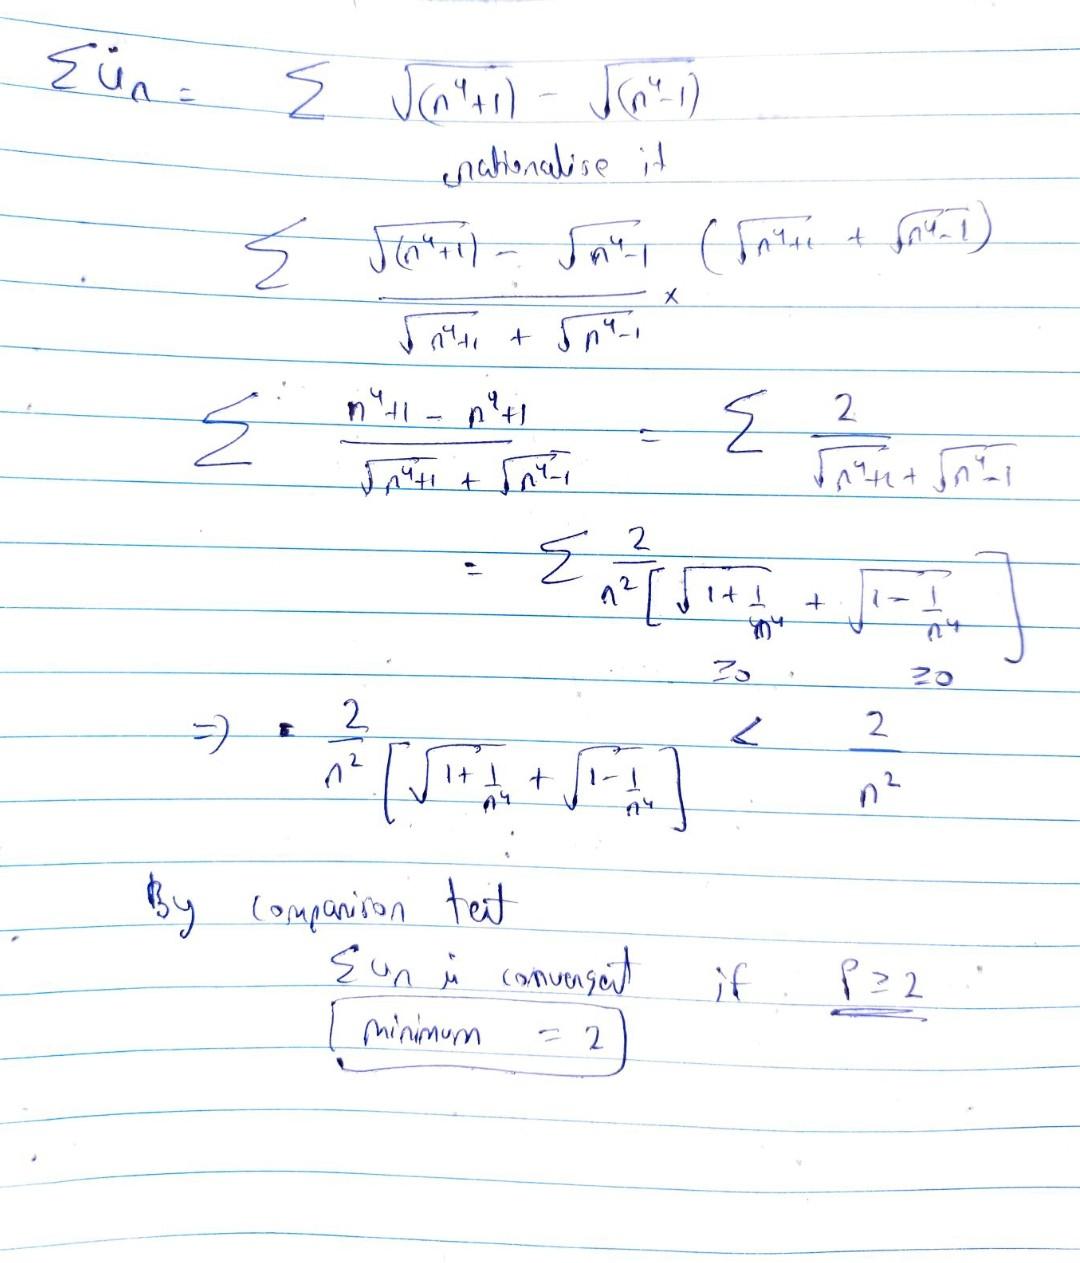 Σ un = Σ √(n⁴+1) - √(n⁴-1)
rationalise it
Σ √(n⁴+1) - √n⁴-1 / √n⁴+1 + √n⁴-1 × (√n⁴+1 + √n⁴-1)
Σ n⁴+1 - n⁴+1 / √n⁴+1 + √n⁴-1 = Σ 2 / √n⁴+1 + √n⁴-1
= Σ 2 / n² [√1+1/n⁴ + √1-1/n⁴]
≥0 ≥0
=> 2 / n² [√1+1/n⁴ + √1-1/n⁴] < 2 / n²
By comparison test
Σ un is convergent if P ≥ 2
minimum = 2